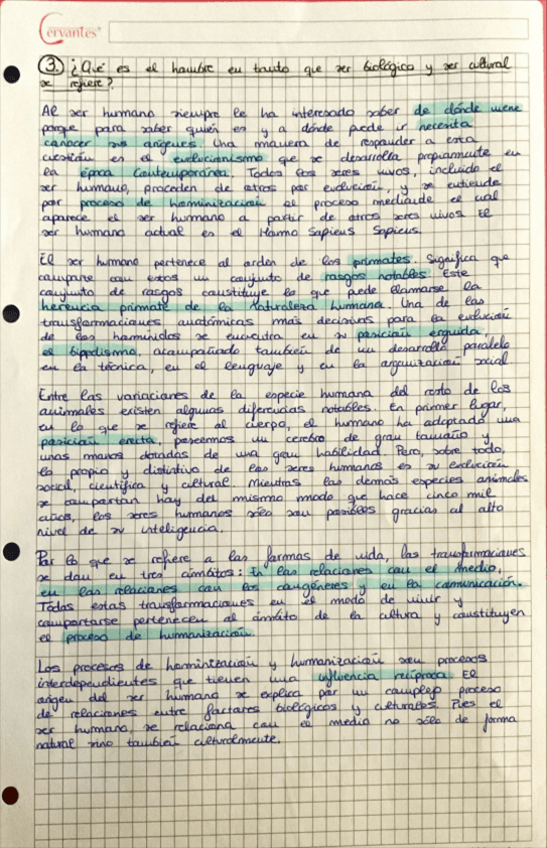 Cervantes
3. ¿Qué es el hombre en tanto que ser biológico y ser cultural
se refiere?
Al ser humano siempre le ha interesado saber de dónde viene
porque para saber quién es y a dónde puede ir necesita
conocer sus orígenes. Una manera de responder a esta
cuestión es el evolucionismo que se desarrolla propiamente en
la época Contemporánea. Todos los seres vivos, incluido el
ser humano, proceden de otros por evolución, y se entiende
por proceso de hominización el proceso mediante el cual
aparece el ser humano a partir de otros seres vivos. El
ser humano actual es el Homo Sapiens Sapiens.
El ser humano pertenece al orden de los primates. Significa que
comparte con estos un conjunto de rasgos notables. Este
conjunto de rasgos constituye lo que puede llamarse la
herencia primate de la Naturaleza humana. Una de las
transformaciones anatómicas más decisivas para la evolución
de los homínidos se encuentra en su posición erguida,
el bipedismo, acompañado también de un desarrollo paralelo
en la técnica, en el lenguaje y en la organización social
Entre las variaciones de la especie humana del resto de los
animales existen algunas diferencias notables. En primer lugar,
en lo que se refiere al cuerpo, el humano ha adoptado una
posición erecta, poseemos un cerebro de gran tamaño y
unas manos dotadas de una gran habilidad. Pero, sobre todo,
lo propio y distintivo de los seres humanos es su evolución
social, científica y cultural. Mientras las demás especies animales
se comportan hoy del mismo modo que hace cinco mil
años, los seres humanos sólo son posibles gracias al alto
nivel de su inteligencia.
Por lo que se refiere a las formas de vida, las transformaciones
se dan en tres ámbitos: En las relaciones con el medio,
en las relaciones con los congéneres y en la comunicación.
Todas estas transformaciones en el modo de vivir y
comportarse pertenecen al ámbito de la cultura y constituyen
el proceso de humanización.
Los procesos de hominización y humanización son procesos
interdependientes que tienen una influencia recíproca. El
origen del ser humano se explica por un complejo proceso
de relaciones entre factores biológicos y culturales. Pues el
ser humano, se relaciona con el medio no sólo de forma
natural sino también culturalmente.